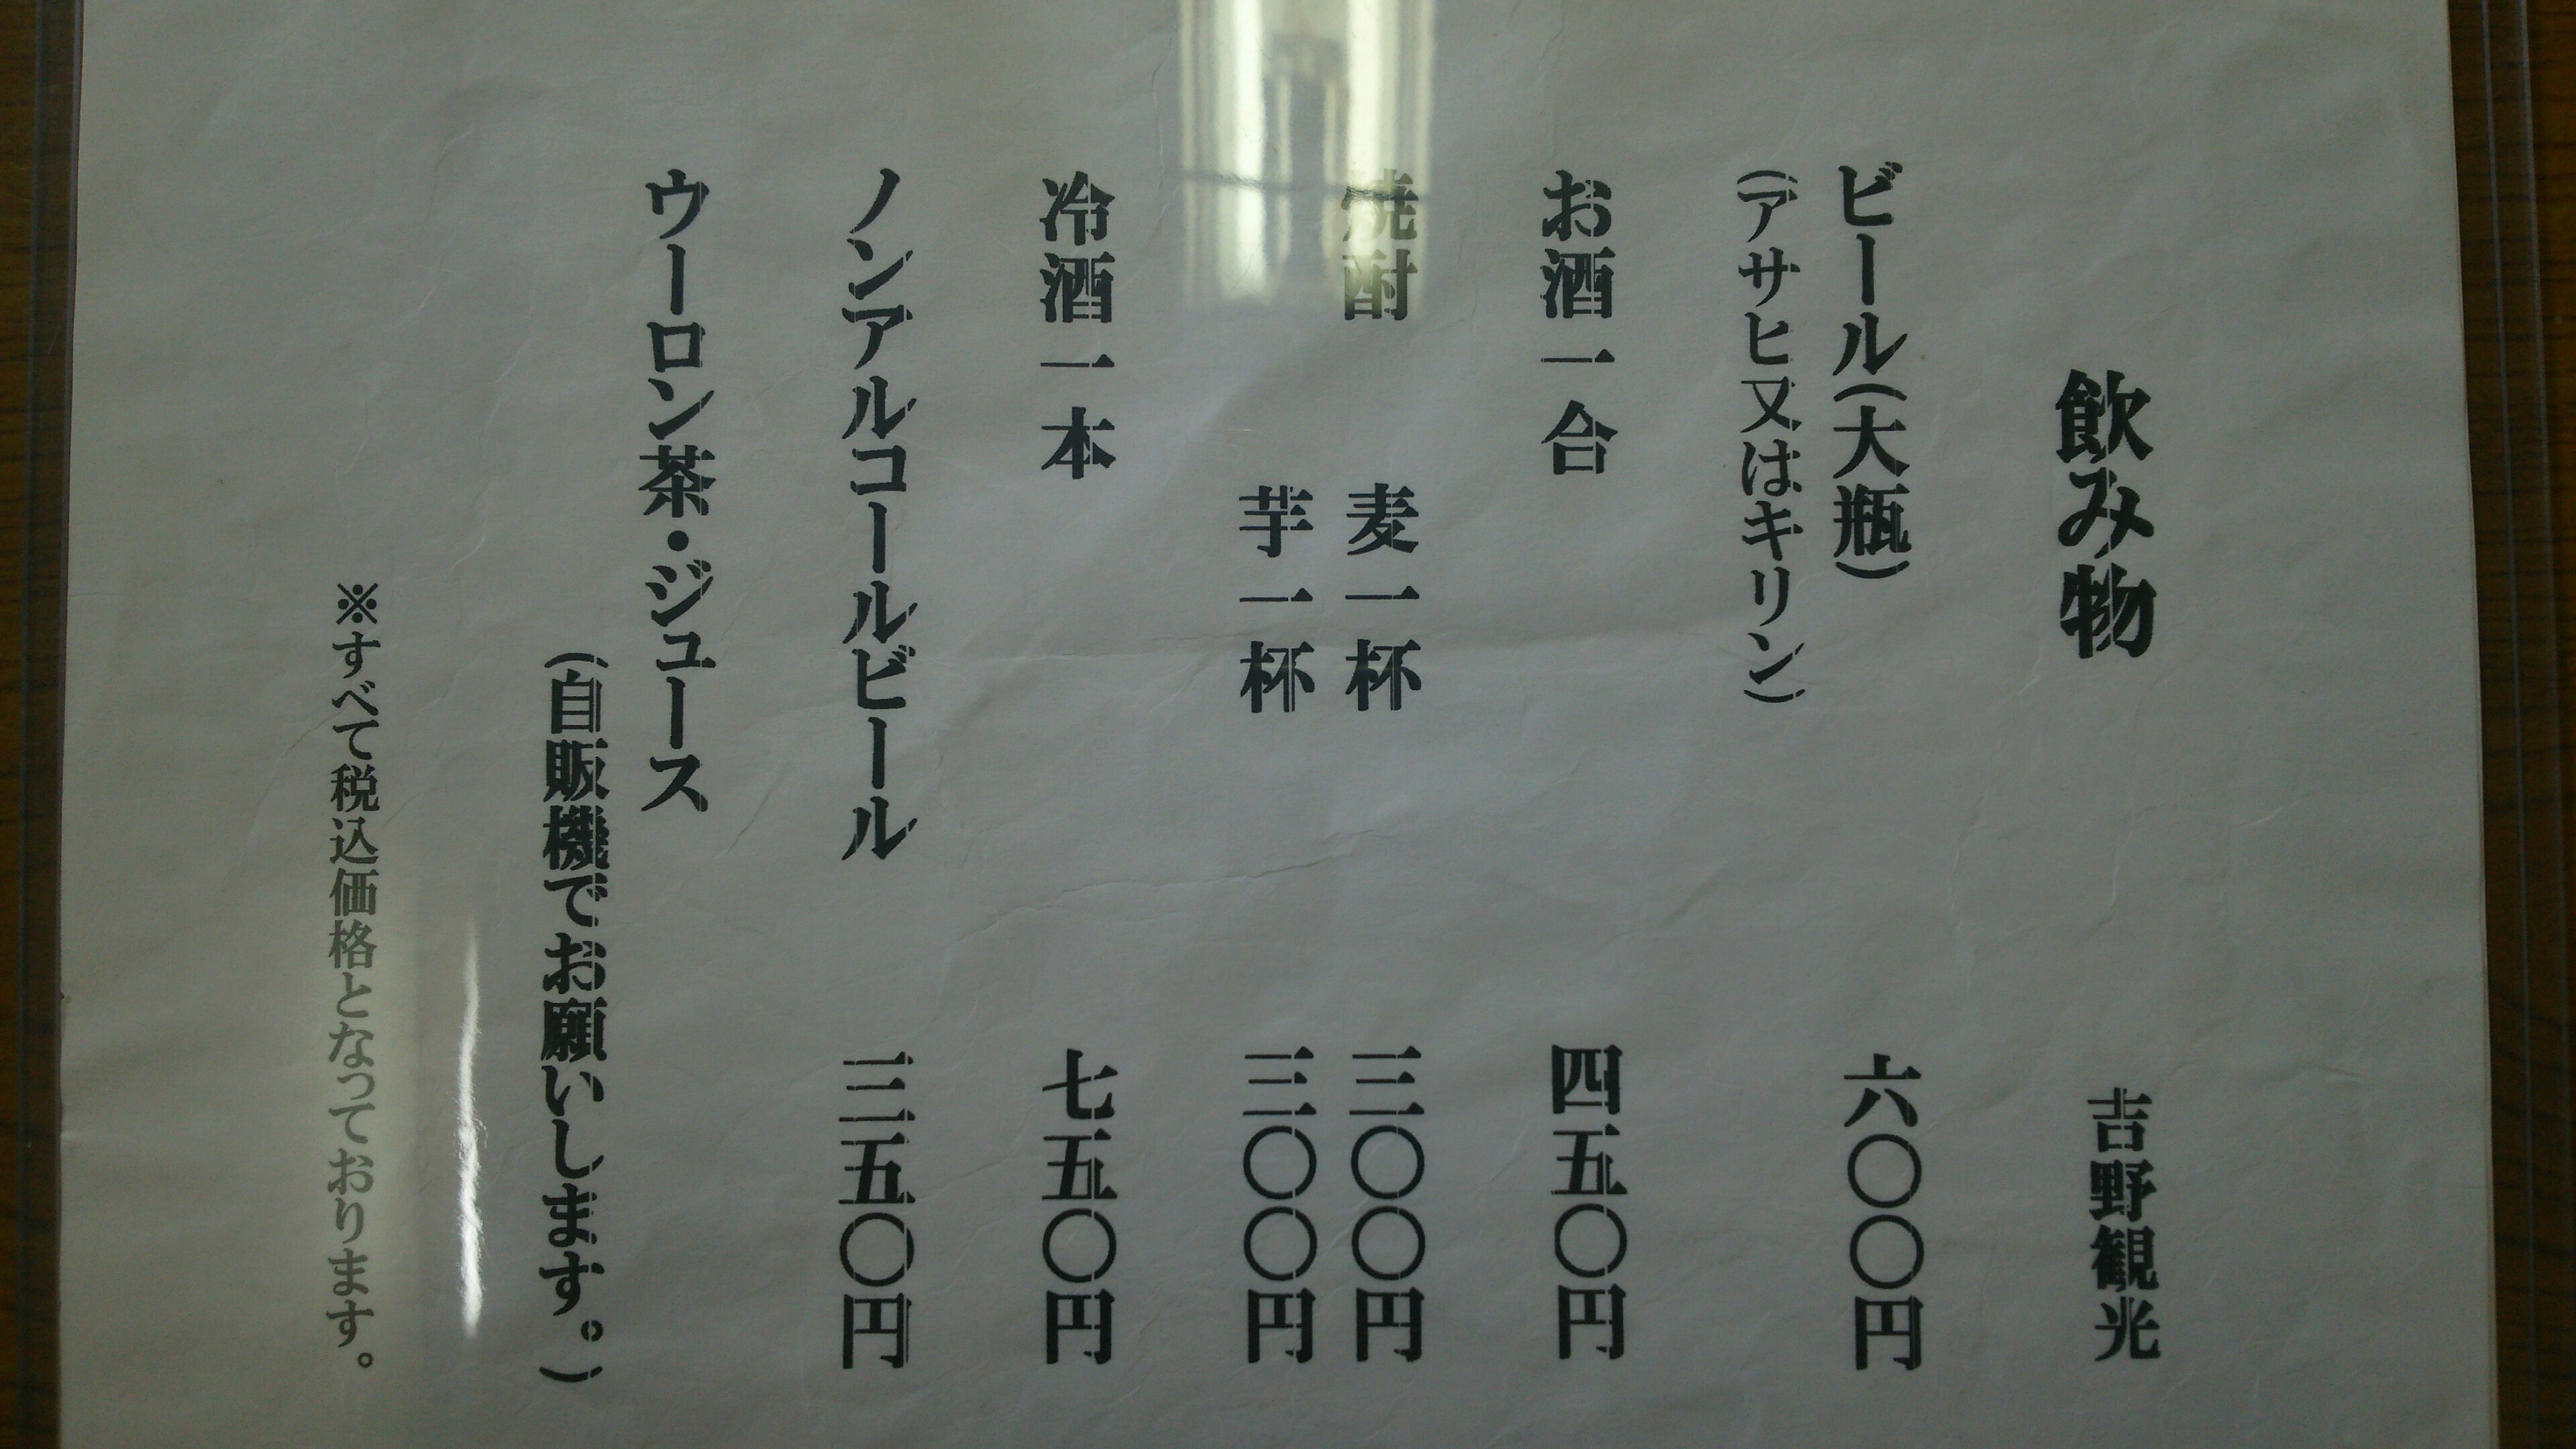 飲み物 吉野観光
ビール(大瓶) 六〇〇円
(アサヒ又はキリン)
お酒一合 四五〇円
焼酎 麦一杯 三〇〇円
芋一杯 三〇〇円
冷酒一本 七五〇円
ノンアルコールビール 三五〇円
ウーロン茶・ジュース
(自販機でお願いします。)
※すべて税込価格となっております。